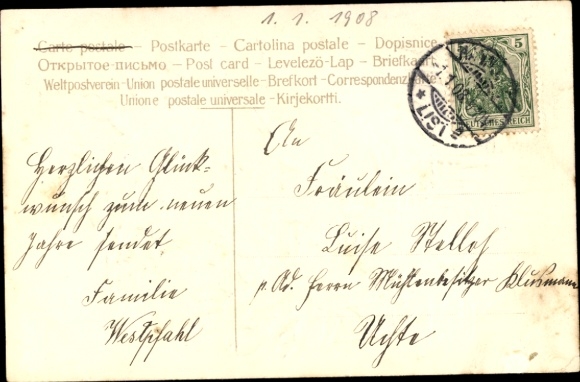 1. 1. 1908
Carte postale – Postkarte – Cartolina postale – Dopisnice
Открытое письмо – Post card – Levelezö-Lap – Briefkaart
Weltpostverein - Union postale universelle - Brefkort - Correspondenzkarte
Unione postale universale - Kirjekortti.
5
DEUTSCHES REICH
Herzlichen Glück-
wunsch zum neuen
Jahre sendet
Familie
Westpfahl
An
Fräulein
Luise
p. Ad. Herrn Mühlenbesitzer Klußmann
Uchte